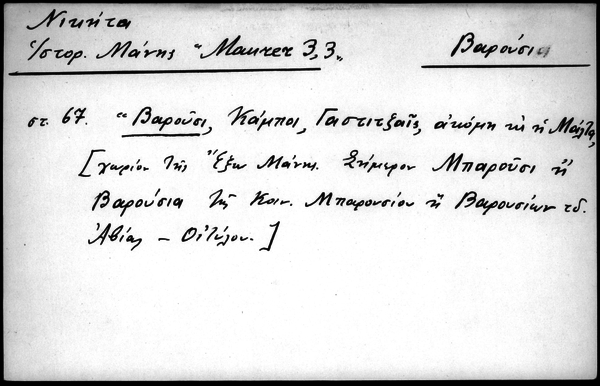 Νικήτα
Ἱστορ. Μάνης "Maurer 3,3"
Βαρούσια
στ. 67. "Βαροῦσι, Κάμποι, Γαστιτζαῖς, ἀκόμη κὶ ἡ Μάλτα,
[χωρίον τῆς Ἔξω Μάνης. Σήμερον Μπαροῦσι ἢ
Βαρούσια τῆς Κοιν. Μπαρουσίου ἢ Βαρουσίων τ.δ.
Ἀβίας – Οἰτύλου.]